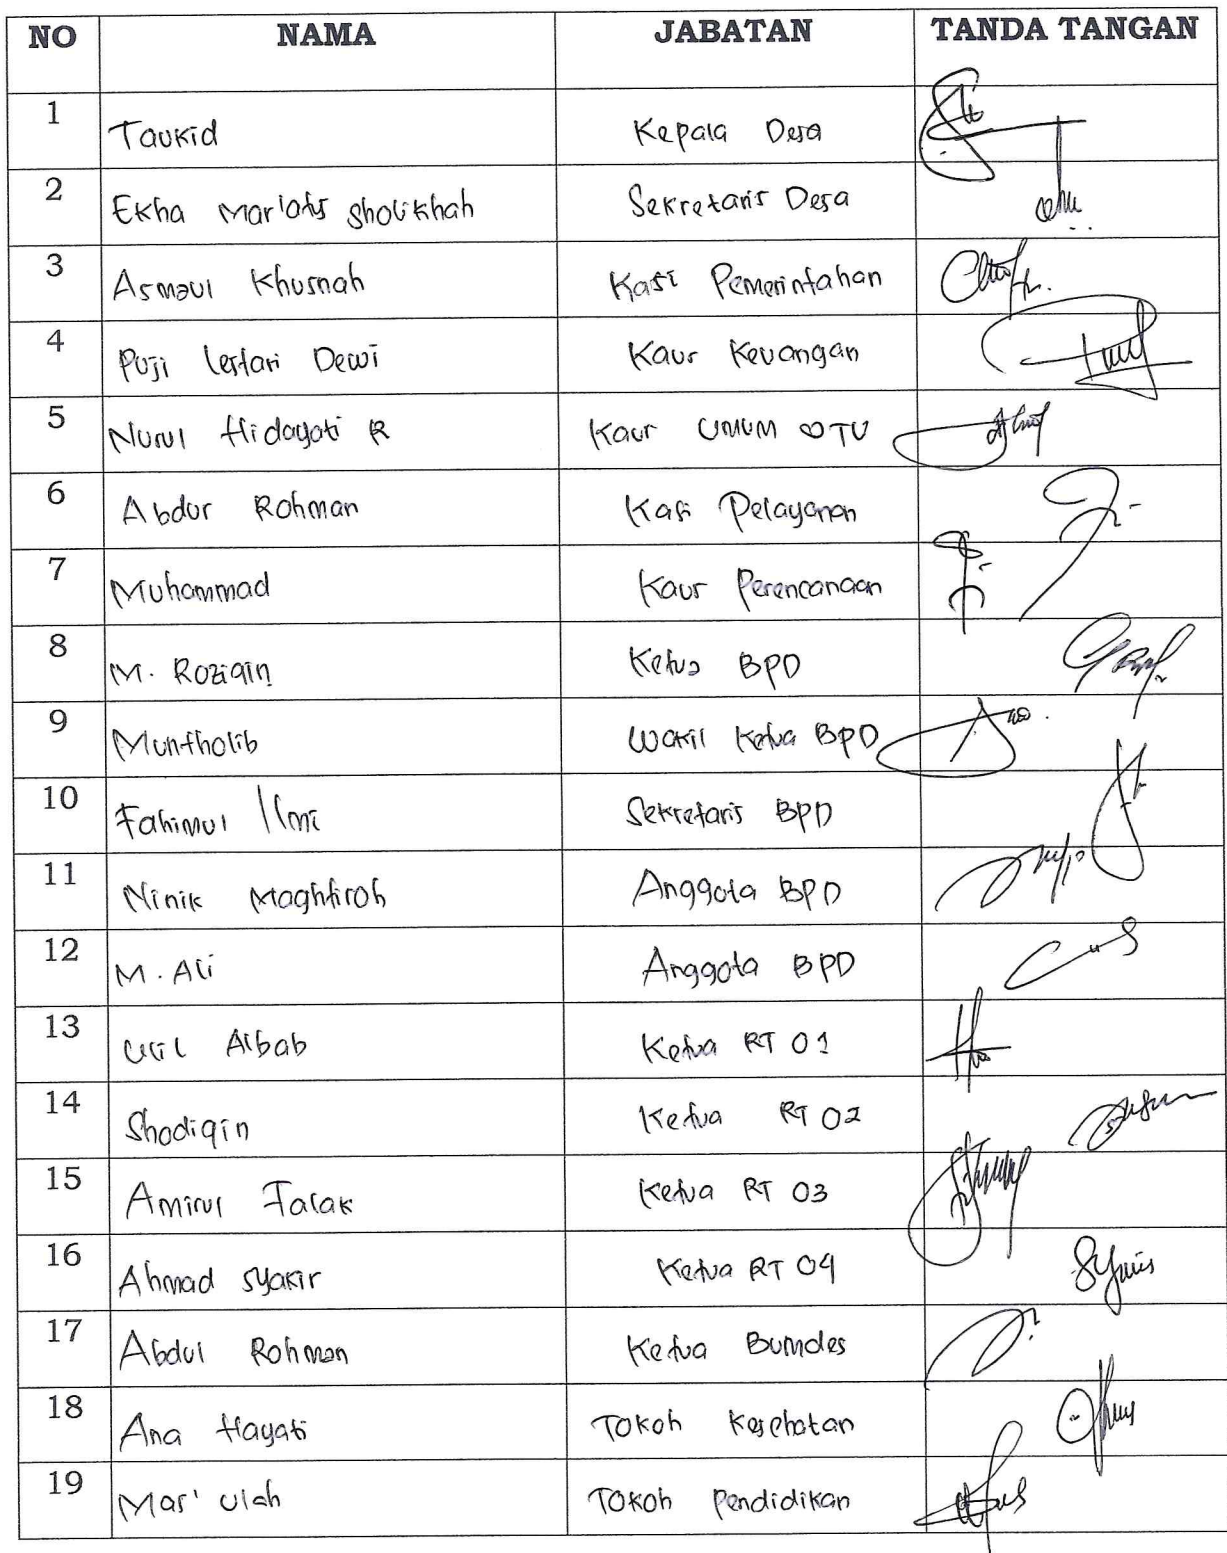 NO NAMA JABATAN TANDA TANGAN
1 Taukid Kepala Desa
2 Ekha Mar'atus Sholikhah Sekretaris Desa
3 Asmaul Khusnah Kasi Pemerintahan
4 Puji Lestari Dewi Kaur Keuangan
5 Nurul Hidayati R Kaur Umum & TU
6 Abdur Rohman Kasi Pelayanan
7 Muhammad Kaur Perencanaan
8 M. Roziqin Ketua BPD
9 Muntholib Wakil Ketua BPD
10 Fahimul Ilmi Sekretaris BPD
11 Ninik Maghfiroh Anggota BPD
12 M. Ali Anggota BPD
13 Ulil Albab Ketua RT 01
14 Shodiqin Ketua RT 02
15 Amirul Falak Ketua RT 03
16 Ahmad Syakir Ketua RT 04
17 Abdul Rohman Ketua Bumdes
18 Ana Hayati Tokoh Kesehatan
19 Mas'ulah Tokoh Pendidikan